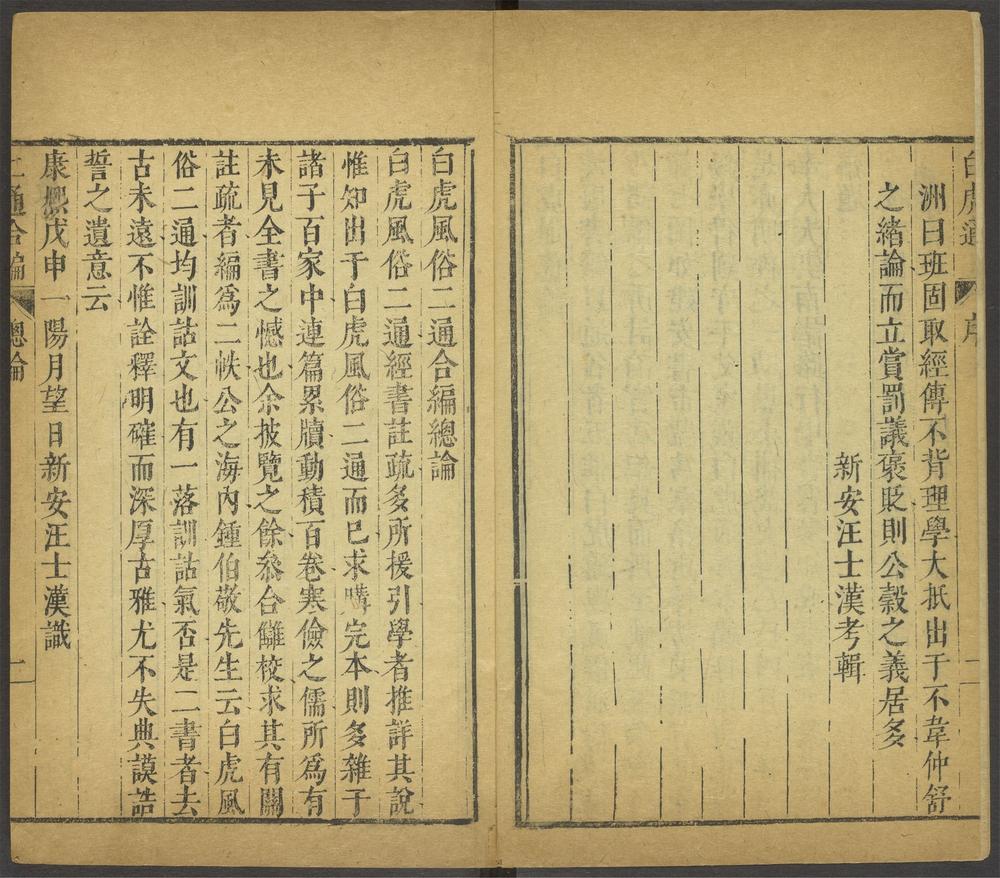 白虎通 序 二
洲曰班固取經傳不背理學大抵出于不韋仲舒
之緒論而立賞罰議褒貶則公糓之義居多
新安汪士漢考輯
白虎風俗二通合編總論
白虎風俗二通經書註疏多所援引學者推詳其說
惟知出于白虎風俗二通而已求購完本則多雜于
諸子百家中連篇累牘動積百卷寒儉之儒所爲有
未見全書之憾也余披覽之餘叅合讎校求其有關
註疏者編爲二帙公之海內鍾伯敬先生云白虎風
俗二通均訓詁文也有一落訓詁氣否是二書者去
古未遠不惟詮釋明確而深厚古雅尤不失典謨誥
誓之遺意云
康熙戊申一陽月望日新安汪士漢識
二通合編 總論 一